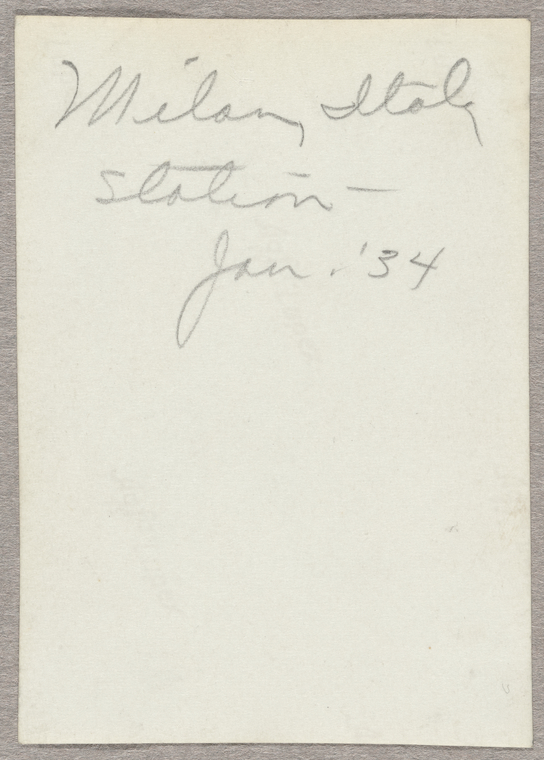 Milan, Italy
Station –
Jan. '34